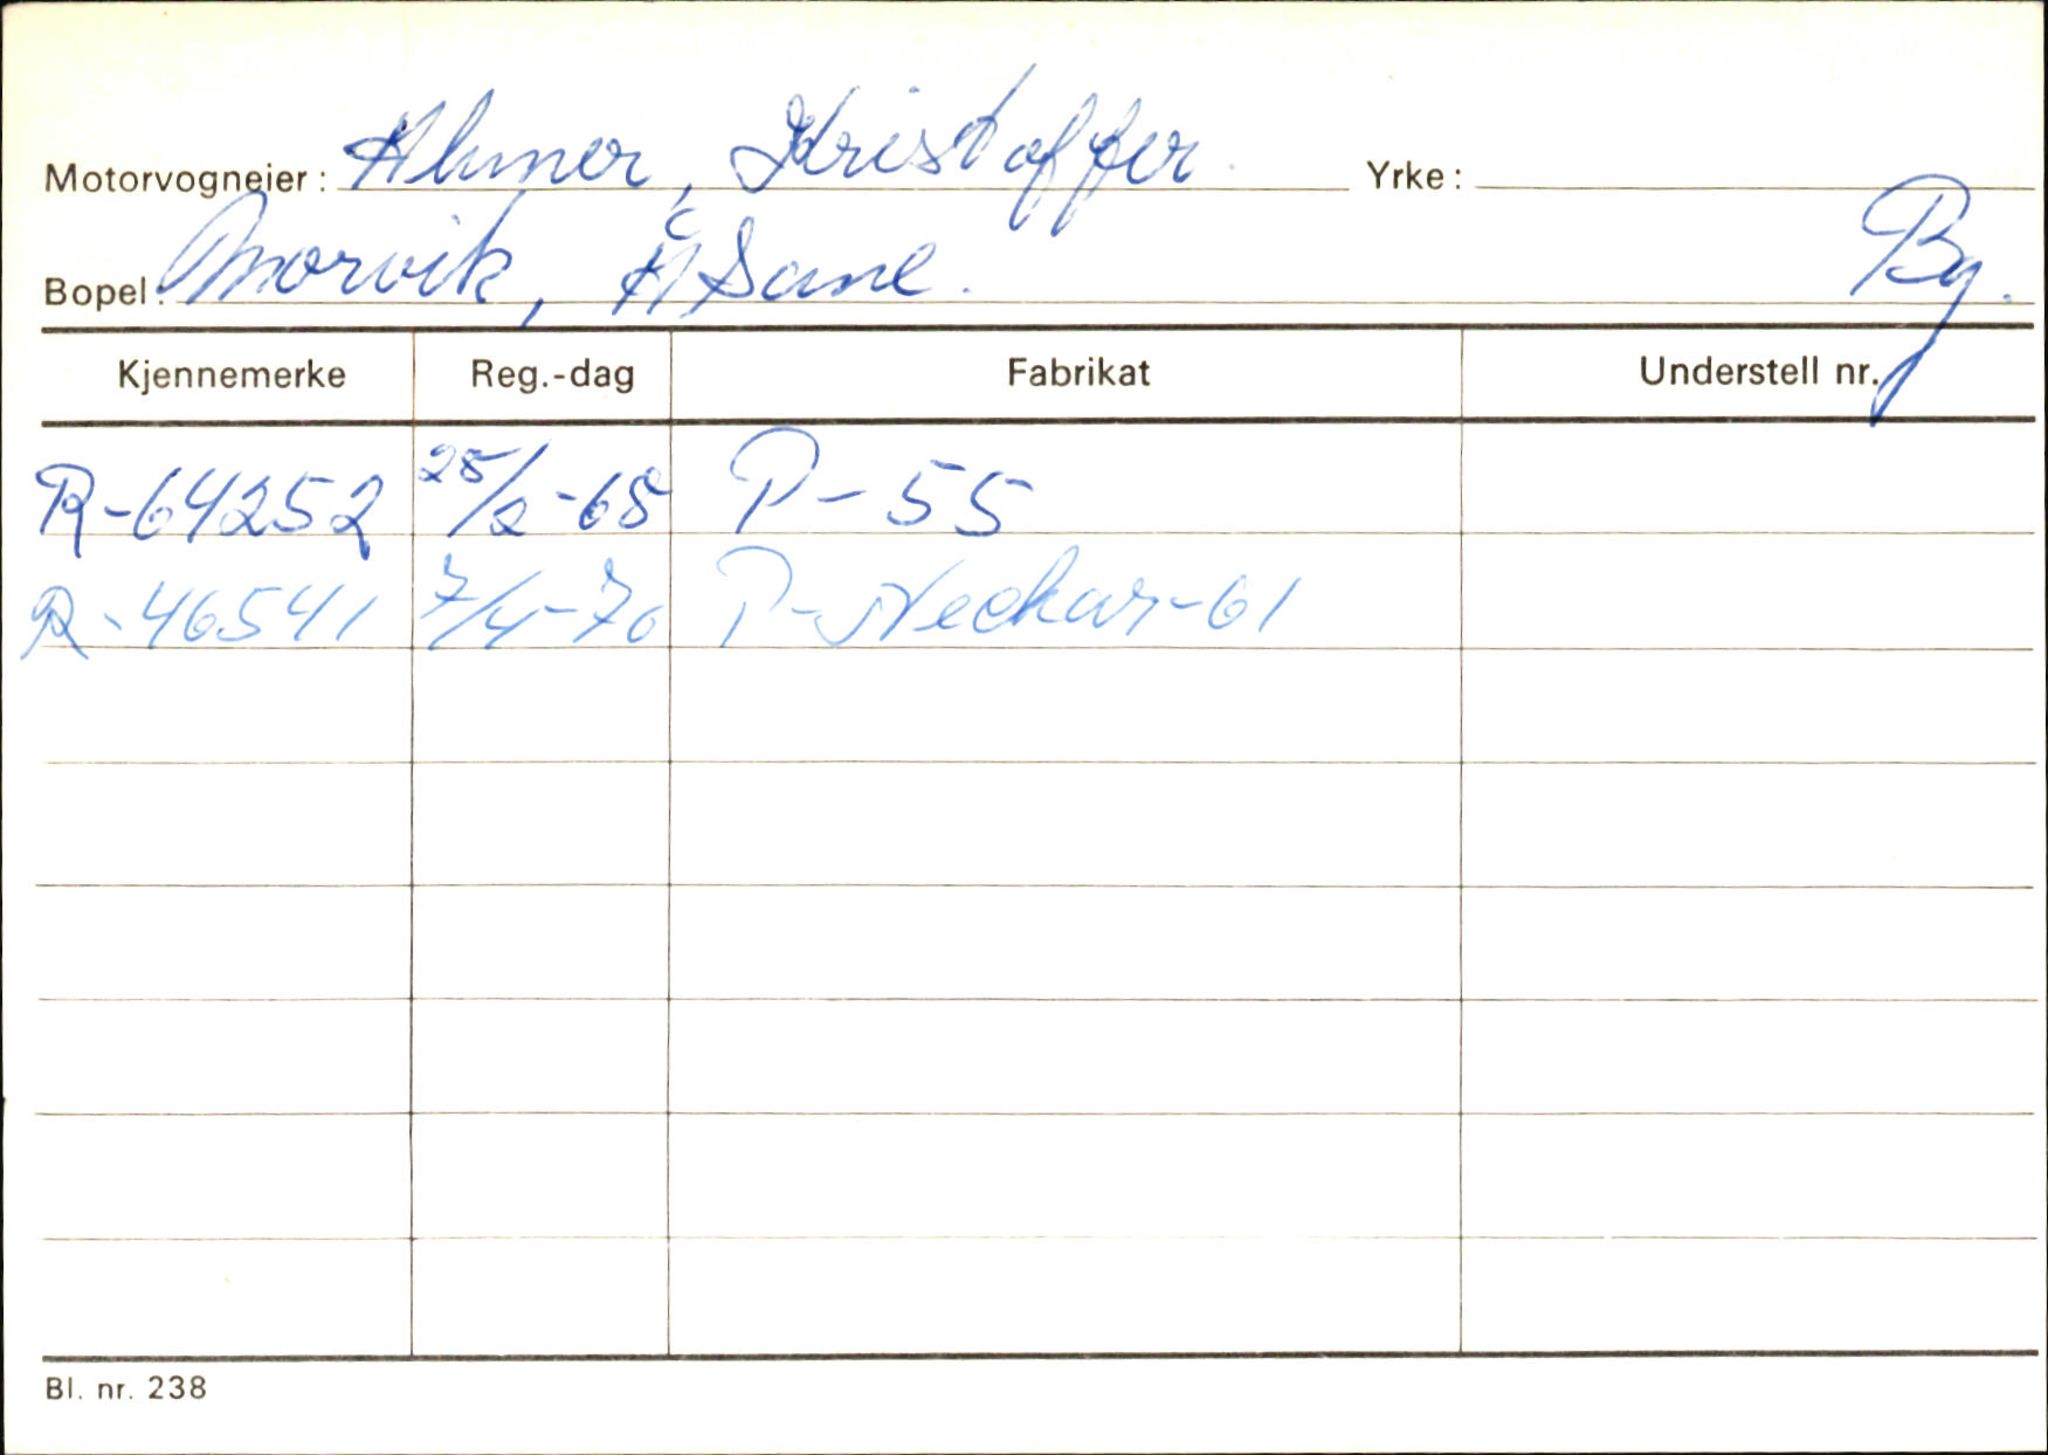 Motorvogneier: Ahmer, Kristoffer Yrke:
Bopel: Morvik, Åsane. By.
Kjennemerke Reg.-dag Fabrikat Understell nr.
R-64252 25/2-68 P-55
R-46541 7/4-70 P-Neckar-61
Bl. nr. 238